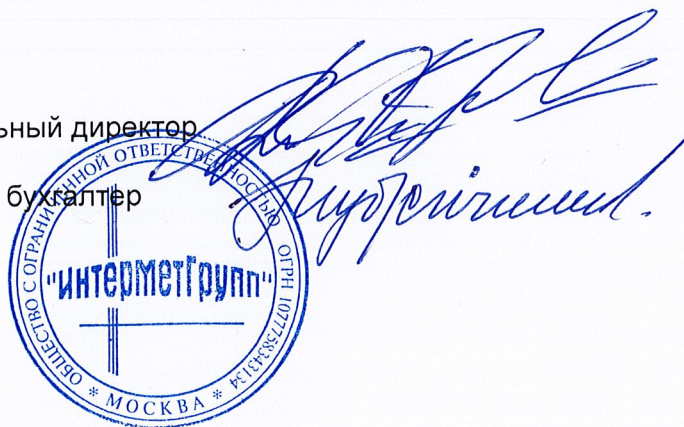 ьный директор
бухгалтер
ОБЩЕСТВО С ОГРАНИЧЕННОЙ ОТВЕТСТВЕННОСТЬЮ ОГРН 1077758343134
"ИНТЕРМЕТГРУПП"
* МОСКВА *